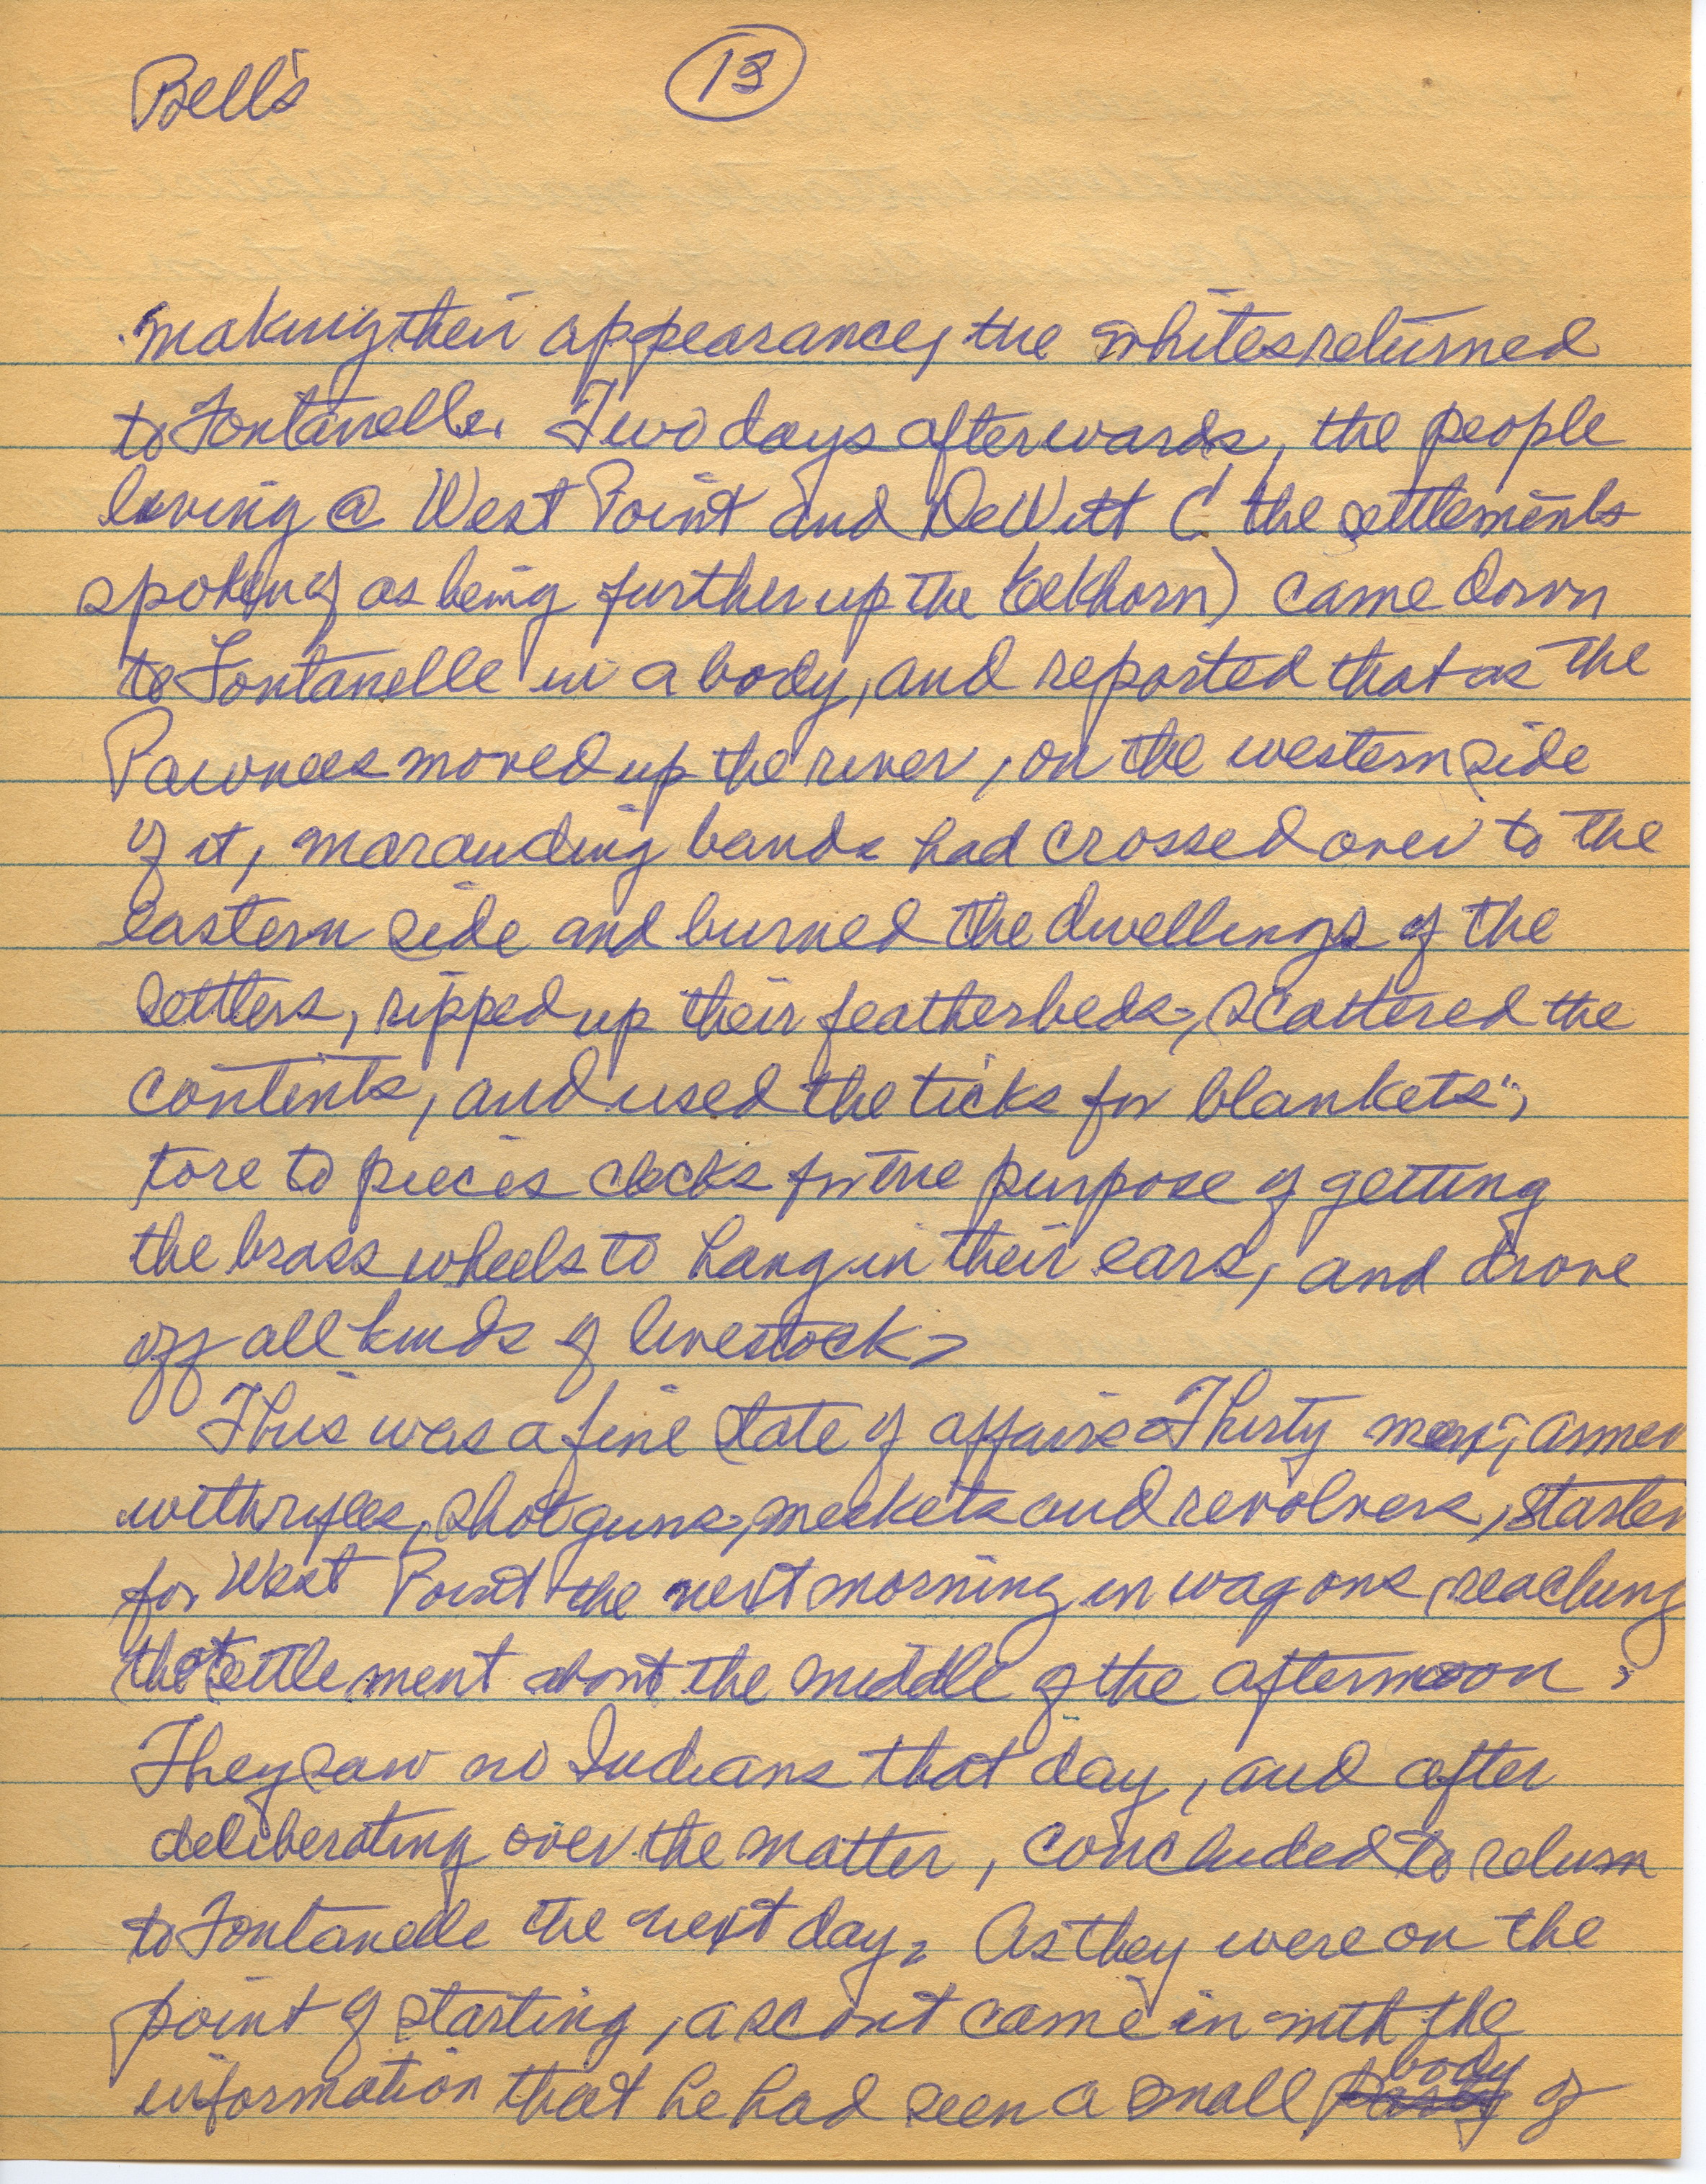 Bell's
13
making their appearance, the whites returned
to Fontanelle. Two days afterwards, the people
living @ West Point and DeWitt ( the settlements
spoken of as being further up the Elkhorn) came down
to Fontanelle in a body, and reported that as the
Pawnees moved up the river, on the western side
of it, marauding bands had crossed over to the
eastern side and burned the dwellings of the
settlers, ripped up their featherbeds, scattered the
contents, and used the ticks for blankets;
tore to pieces clocks for the purpose of getting
the brass wheels to hang in their ears, and drove
off all kinds of livestock.
This was a fine state of affairs. Thirty men, armed
with rifles, shotguns, muskets and revolvers, started
for West Point the next morning in wagons, reaching
that settlement about the middle of the afternoon.
They saw no Indians that day, and after
deliberating over the matter, concluded to return
to Fontanelle the next day. As they were on the
point of starting, a scout came in with the
information that he had seen a small party body of